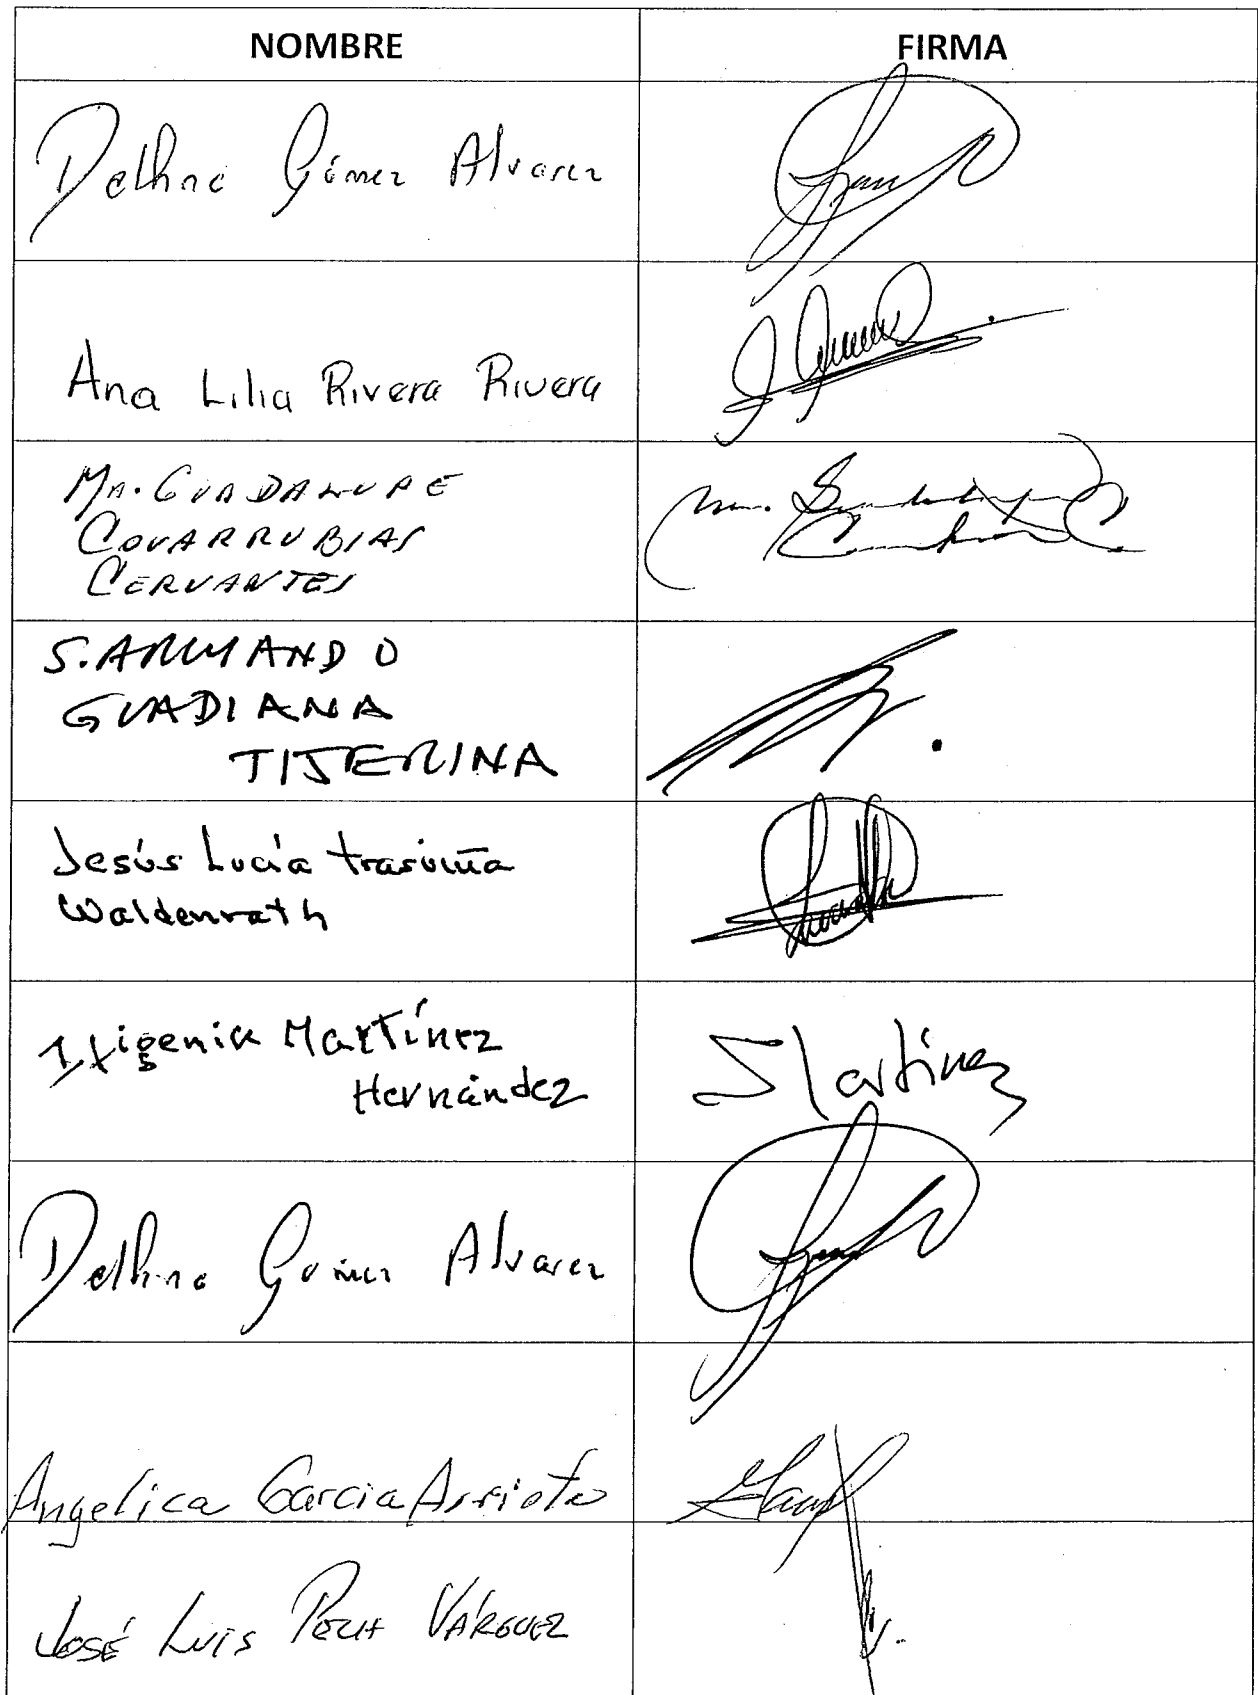 NOMBRE FIRMA
Delfina Gómez Alvarez
Ana Lilia Rivera Rivera
Ma. GUADALUPE
COVARRUBIAS
CERVANTES
S. ARMANDO
GUADIANA
TIJERINA
Jesús Lucía Trasviña
Waldenrath
Ifigenia Martínez
Hernández
Martinez
Delfina Gómez Alvarez
Angelica Garcia Arrieta
JOSÉ LUIS PECH VÁRGUEZ